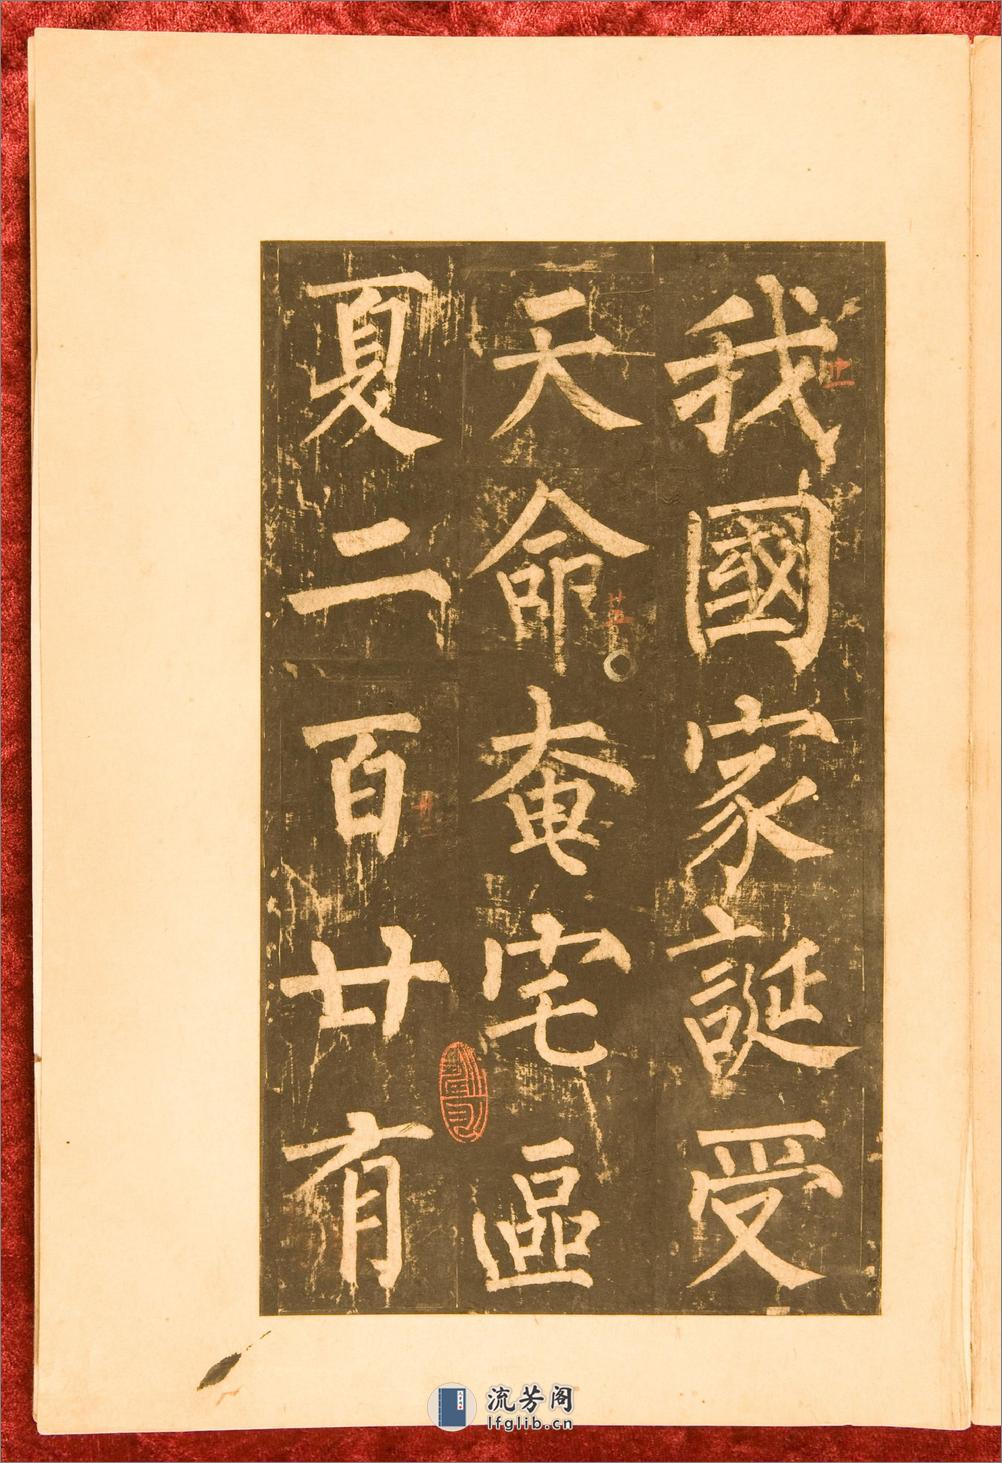 我國家誕受
天命奄宅區
夏二百廿有
流芳阁
lfglib.cn